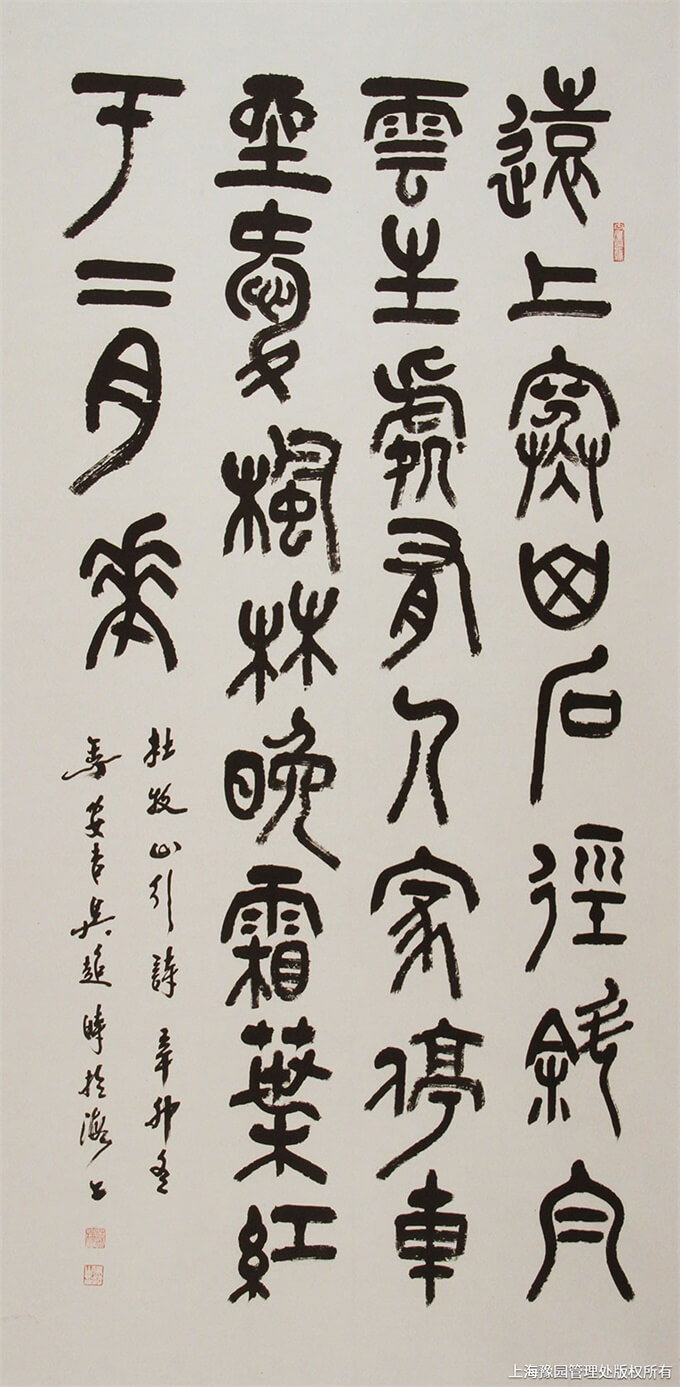 遠上寒山石徑斜白
雲生處有人家停車
坐愛楓林晚霜葉紅
于二月花
杜牧山行詩 辛卯冬
安吉吳 時於海上
上海豫园管理处版权所有